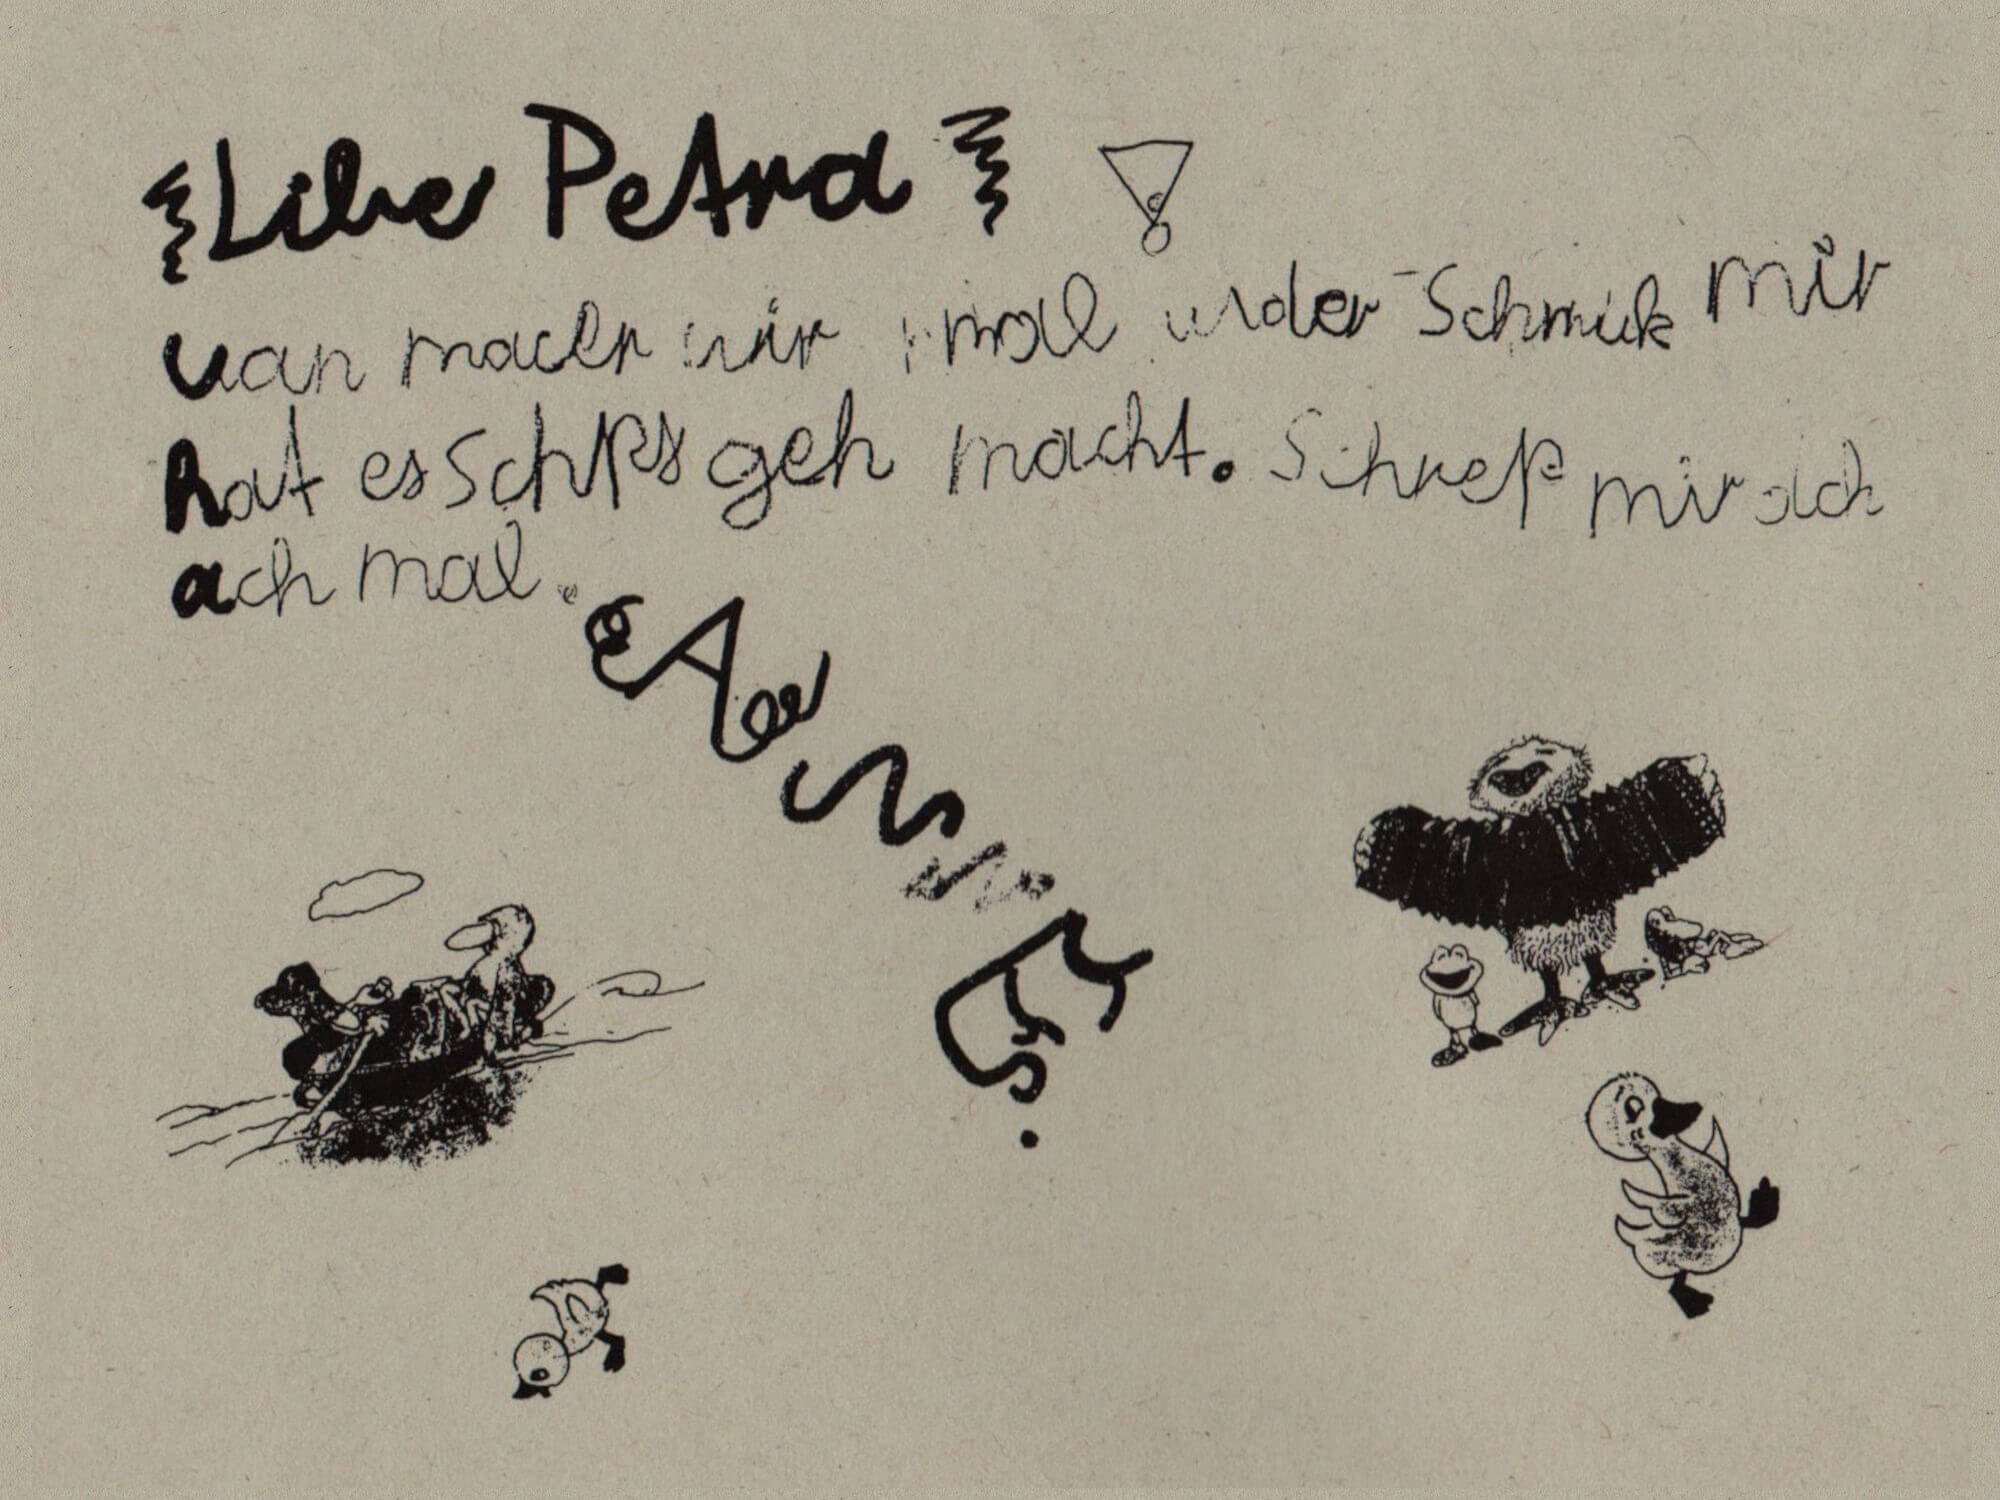 Liber Petra
uan macen wir mal wider Schmuk mir
hat es Schps geh macht. Schrep mir dch
ach mal.